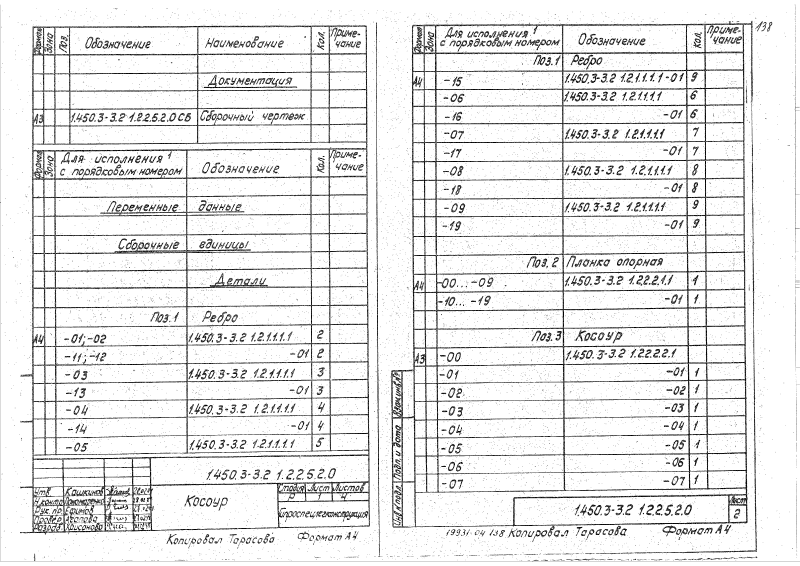 Формат Зона Поз. Обозначение Наименование Кол. Приме-чание
Документация
А3 1.450.3-3.2 1.2.2.5.2.0 СБ Сборочный чертеж
Формат Зона Для исполнения 1 с порядковым номером Обозначение Кол. Приме-чание
Переменные данные
Сборочные единицы
Детали
Поз.1 Ребро
А4 -01;-02 1.450.3-3.2 1.2.1.1.1.1 2
-11;-12 -01 2
-03 1.450.3-3.2 1.2.1.1.1.1 3
-13 -01 3
-04 1.450.3-3.2 1.2.1.1.1.1 4
-14 -01 4
-05 1.450.3-3.2 1.2.1.1.1.1 5
1.450.3-3.2 1.2.2.5.2.0
Утв. Кашкинов
Н.контр.
Рук. пр. Ефимов
Провер. Агапова
Разраб.
Косоур
Стадия Лист Листов
Р 1 4
Копировал Тарасова Формат А4
138
Формат Зона Для исполнения 1 с порядковым номером Обозначение Кол. Приме-чание
Поз.1 Ребро
А4 -15 1.450.3-3.2 1.2.1.1.1.1-01 9
-06 1.450.3-3.2 1.2.1.1.1.1 6
-16 -01 6
-07 1.450.3-3.2 1.2.1.1.1.1 7
-17 -01 7
-08 1.450.3-3.2 1.2.1.1.1.1 8
-18 -01 8
-09 1.450.3-3.2 1.2.1.1.1.1 9
-19 -01 9
Поз. 2 Планка опорная
А4 -00...-09 1.450.3-3.2 1.2.2.2.1.1 1
-10...-19 -01 1
Поз.3 Косоур
А3 -00 1.450.3-3.2 1.2.2.2.2.1
-01 -01 1
-02 -02 1
-03 -03 1
-04 -04 1
-05 -05 1
-06 -06 1
-07 -07 1
Инв.№ подл. Подп. и дата Взам.инв.№
1.450.3-3.2 1.2.2.5.2.0
Лист
2
19931-04 138 Копировал Тарасова Формат А4